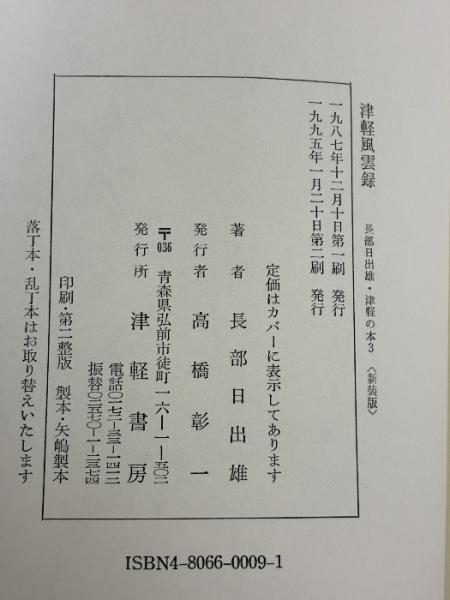 津軽風雲録
長部日出雄・津軽の本3〈新装版〉
一九八七年十二月十日第一刷 発行
一九九五年一月二十日第二刷 発行
定価はカバーに表示してあります
著者 長部日出雄
発行者 高橋彰一
〒036 青森県弘前市徒町一六―一―五〇二
発行所 津軽書房
電話〇一七二―三三―一四一二
振替〇二三五〇―一―二三七四
印刷・第二整版 製本・矢嶋製本
落丁本・乱丁本はお取り替えいたします
ISBN4-8066-0009-1